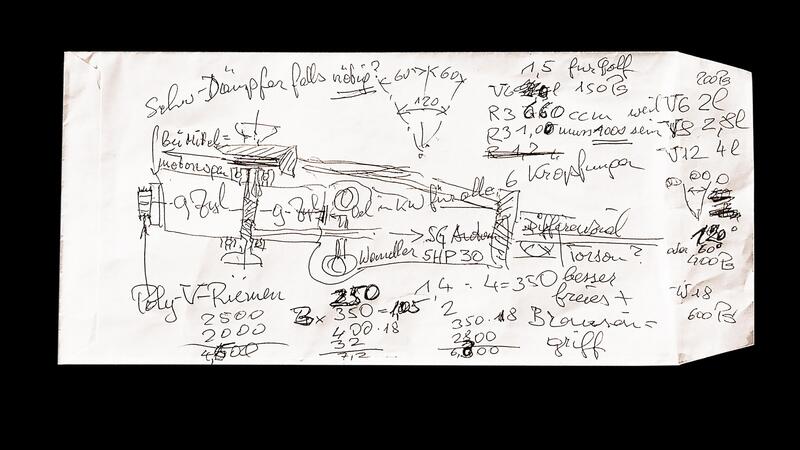 Schw-Dämpfer falls nötig?
60° 60
120
1,5 für Golf
V6 150 PS
R3 660 ccm weil
R3 1,00 muss 1000 sein
R 1,2
6 Kröpfungen
200 PS
V6 2l
V8 2,8l
V12 4l
120°
oder 60°
400 PS
W18
600 PS
Bei Mittel=
motorwagen
9 Zyl
9 Zyl
für alle
Wandler
SG
5HP30
Differenzial
Torsen?
Poly-V-Riemen
2500
2000
4500
250
350 = 105
400.18
32
7,2
1,4 : 4 = 350 besser
freies +
2
350.18
2800
6300